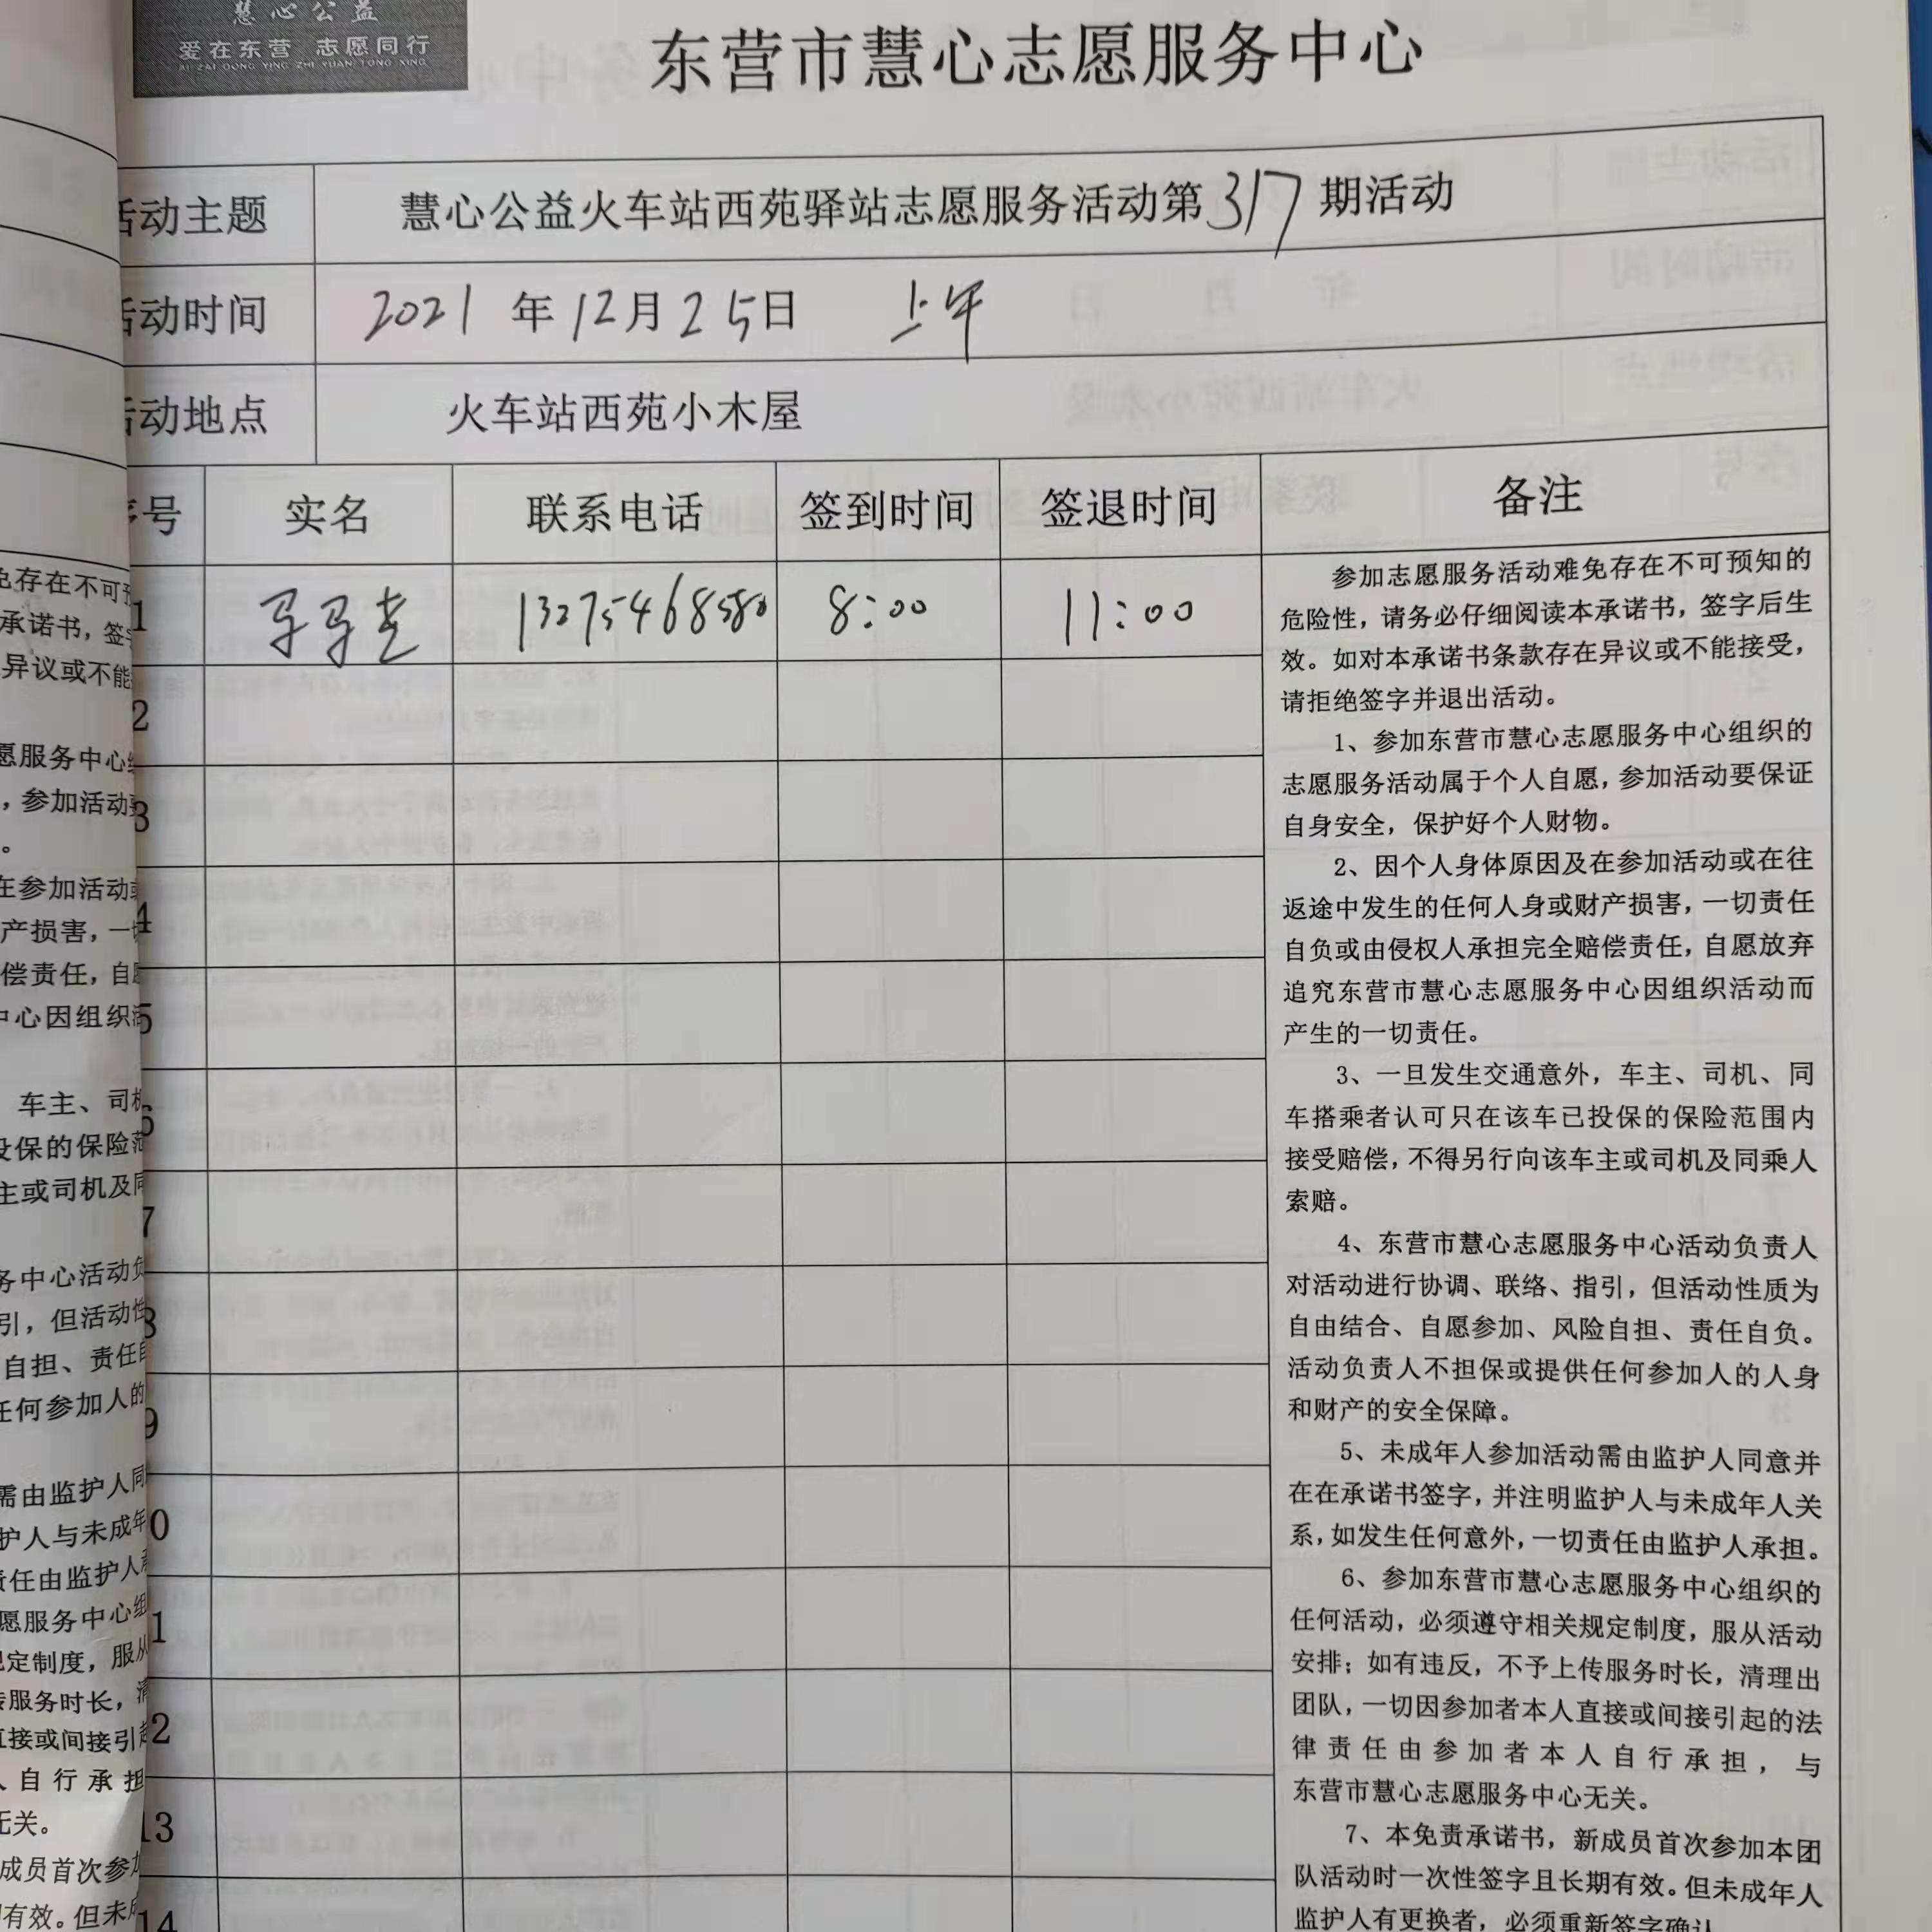 慧心公益
爱在东营 志愿同行
AI ZAI DONG YING ZHI YUAN TONG XING
东营市慧心志愿服务中心
活动主题 慧心公益火车站西苑驿站志愿服务活动第317期活动
活动时间 2021年12月25日 上午
活动地点 火车站西苑小木屋
序号 实名 联系电话 签到时间 签退时间 备注
1 13275468580 8:00 11:00
2
3
4
5
6
7
8
9
0
1
2
13
14
参加志愿服务活动难免存在不可预知的
危险性，请务必仔细阅读本承诺书，签字后生
效。如对本承诺书条款存在异议或不能接受，
请拒绝签字并退出活动。
1、参加东营市慧心志愿服务中心组织的
志愿服务活动属于个人自愿，参加活动要保证
自身安全，保护好个人财物。
2、因个人身体原因及在参加活动或在往
返途中发生的任何人身或财产损害，一切责任
自负或由侵权人承担完全赔偿责任，自愿放弃
追究东营市慧心志愿服务中心因组织活动而
产生的一切责任。
3、一旦发生交通意外，车主、司机、同
车搭乘者认可只在该车已投保的保险范围内
接受赔偿，不得另行向该车主或司机及同乘人
索赔。
4、东营市慧心志愿服务中心活动负责人
对活动进行协调、联络、指引，但活动性质为
自由结合、自愿参加、风险自担、责任自负。
活动负责人不担保或提供任何参加人的人身
和财产的安全保障。
5、未成年人参加活动需由监护人同意并
在在承诺书签字，并注明监护人与未成年人关
系，如发生任何意外，一切责任由监护人承担。
6、参加东营市慧心志愿服务中心组织的
任何活动，必须遵守相关规定制度，服从活动
安排；如有违反，不予上传服务时长，清理出
团队，一切因参加者本人直接或间接引起的法
律责任由参加者本人自行承担，与
东营市慧心志愿服务中心无关。
7、本免责承诺书，新成员首次参加本团
队活动时一次性签字且长期有效。但未成年人
监护人有更换者，必须重新签字确认